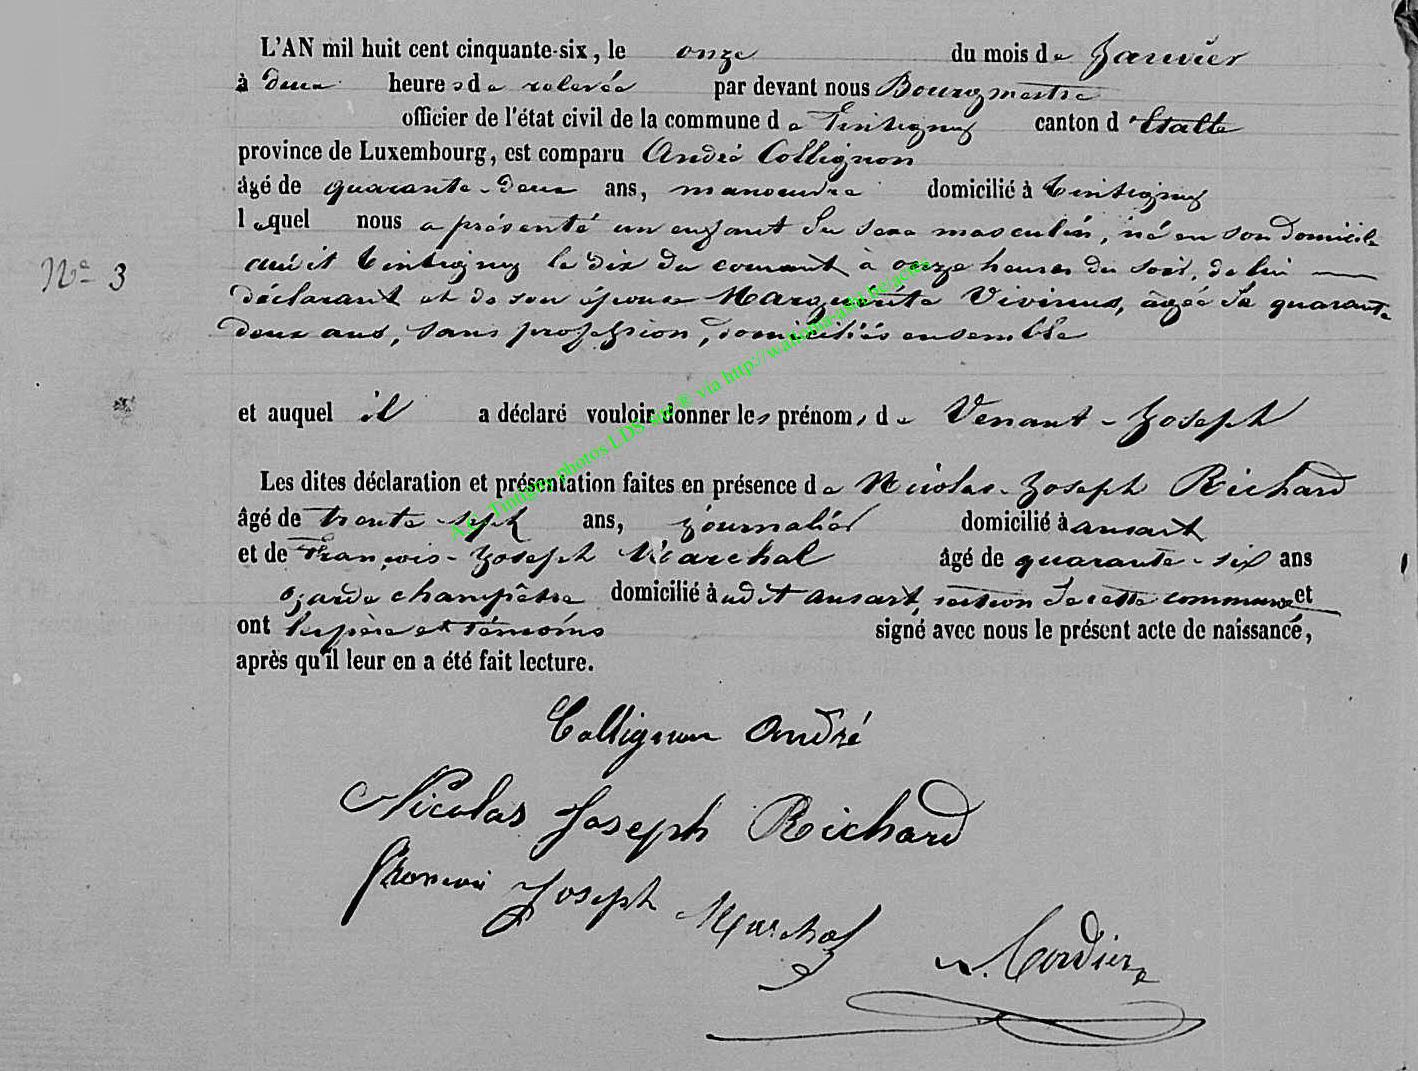 L'AN mil huit cent cinquante-six, le onze du mois de Janvier
à deux heures de relevée par devant nous Bourgmestre
officier de l'état civil de la commune de Tintigny canton d'Etalle
province de Luxembourg, est comparu André Collignon
âgé de quarante-deux ans, manoeuvre domicilié à Tintigny
lequel nous a présenté un enfant du sexe masculin, né en son domicile
audit Tintigny le dix du courant à onze heures du soir, de lui
déclarant et de son épouse Marguerite Vivinus, âgée de quarante
deux ans, sans profession, domiciliés ensemble
N° 3
et auquel il a déclaré vouloir donner les prénoms de Venant-Joseph
Les dites déclaration et présentation faites en présence de Nicolas-Joseph Richard
âgé de trente-sept ans, journalier domicilié à ansart
et de François-Joseph Marchal âgé de quarante-six ans
garde champêtre domicilié audit ansart, section de cette commune et
ont les père et témoins signé avec nous le présent acte de naissance,
après qu'il leur en a été fait lecture.
Collignon André
Nicolas Joseph Richard
François Joseph Marchal
Cordier
A.C. Tintigny photos LDS via http://wallonia-asbl.be/actes